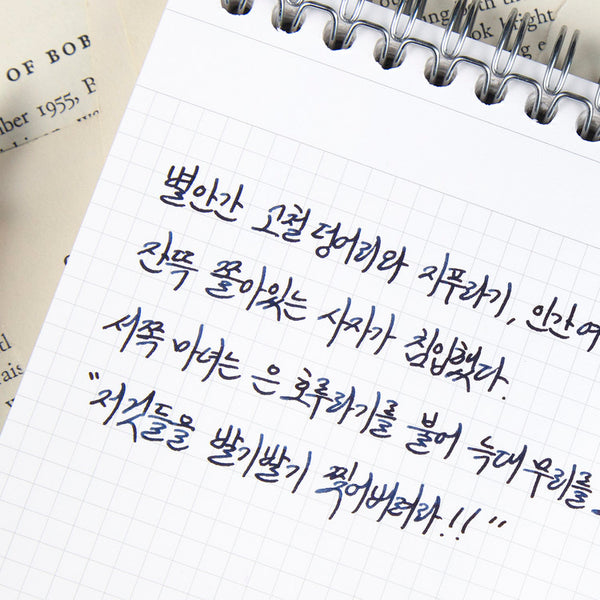 OF BOB
1955,
별안간 고철덩어리와 지푸라기, 인간여
잔뜩 쫄아있는 사자가 침입했다.
서쪽 마녀는 은호루라기를 불어 늑대무리를
"저것들을 발기발기 찢어버려라!!"